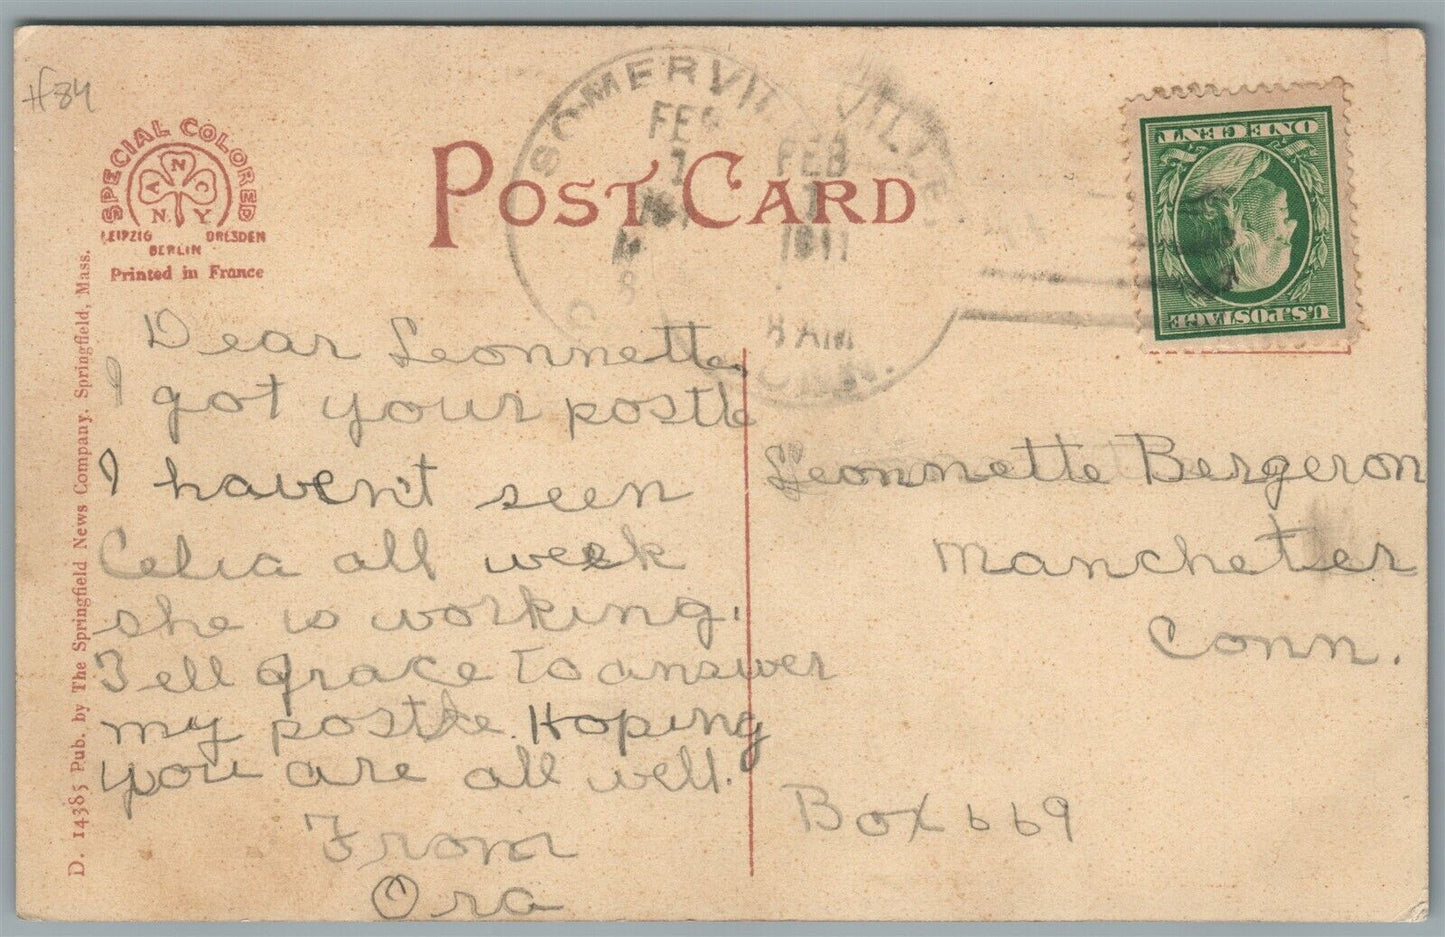 #84
SPECIAL COLORED
A N C
N. Y.
LEIPZIG DRESDEN
BERLIN
Printed in France
POST CARD
SOMERVIL
FEB
1
8
VILLE
FEB
1
1911
8 AM
CONN.
ONE CENT
U.S. POSTAGE
D. 14385 Pub. by The Springfield News Company, Springfield, Mass.
Dear Leonnette,
I got your postle
I haven't seen
Celia all week
she is working.
Tell Grace to answer
my postle. Hoping
you are all well.
From
Ora
Leonnette Bergeron
Manchester
Conn.
Box 669